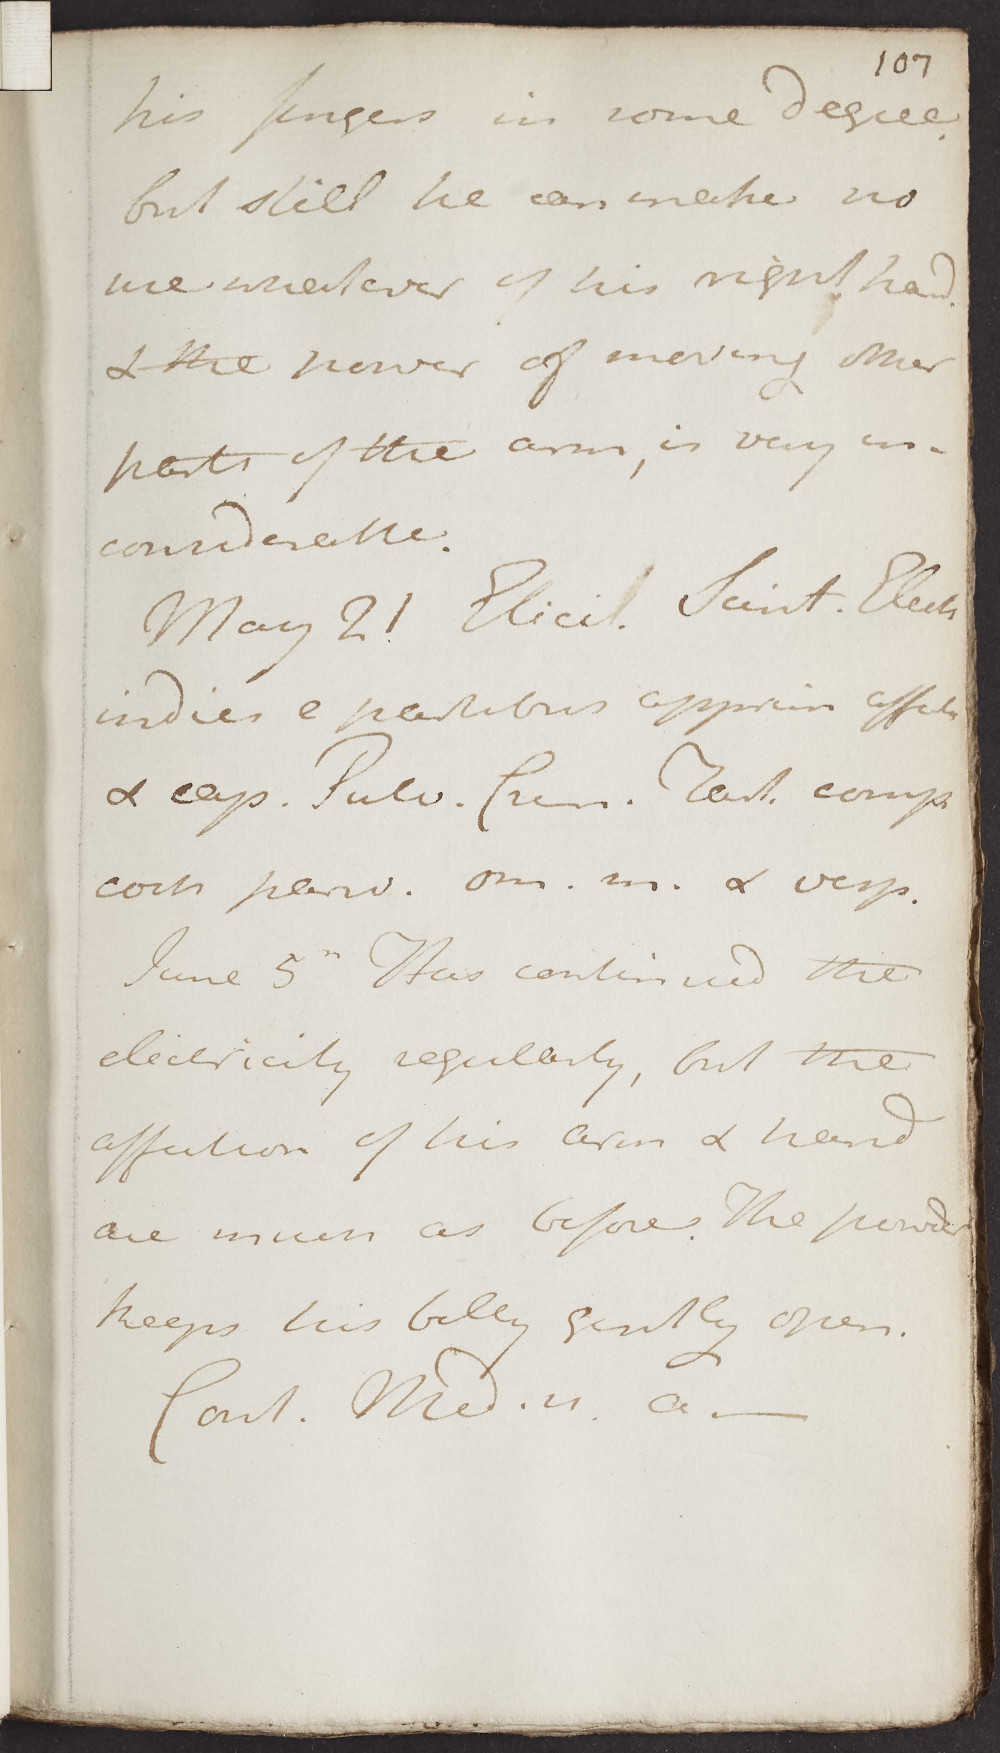 107
his fingers in some degree,
but still he can make no
use whatever of his right hand.
& the power of moving other
parts of the arm, is very in-
considerable.
May 21 Elicit. Scint. Elect
indies e partibus affect
& cap. Pulv. Crem. Tart. comp
coch parv. om. m. & vesp.
June 5th Has continued the
electricity regularly, but the
affection of his arm & hand
are much as before. The powder
keeps his belly gently open.
Cont. Med. u. a.